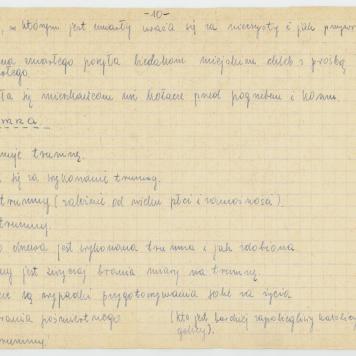 -10-
, w którym jest zmarły uważa się za nieczysty i jak przywr
na zmarłego posyła biedakom miejskim chleb z prośbą
łego.
ła się mieszkańcom na kołacze przed pogrzebem i komu.
mna.
muje trumnę.
się za wykonanie trumny.
trumny (zależnie od wieku płci i zamożności).
trumny.
o drzewa jest wykonana trumna i jak zdobiona.
ny jest zwyczaj brania miary na trumnę.
ie są wypadki przygotowywania sobie za życia.
rania pośmiertnego (kto jest bardziej zapobiegliwy
).
trumny.